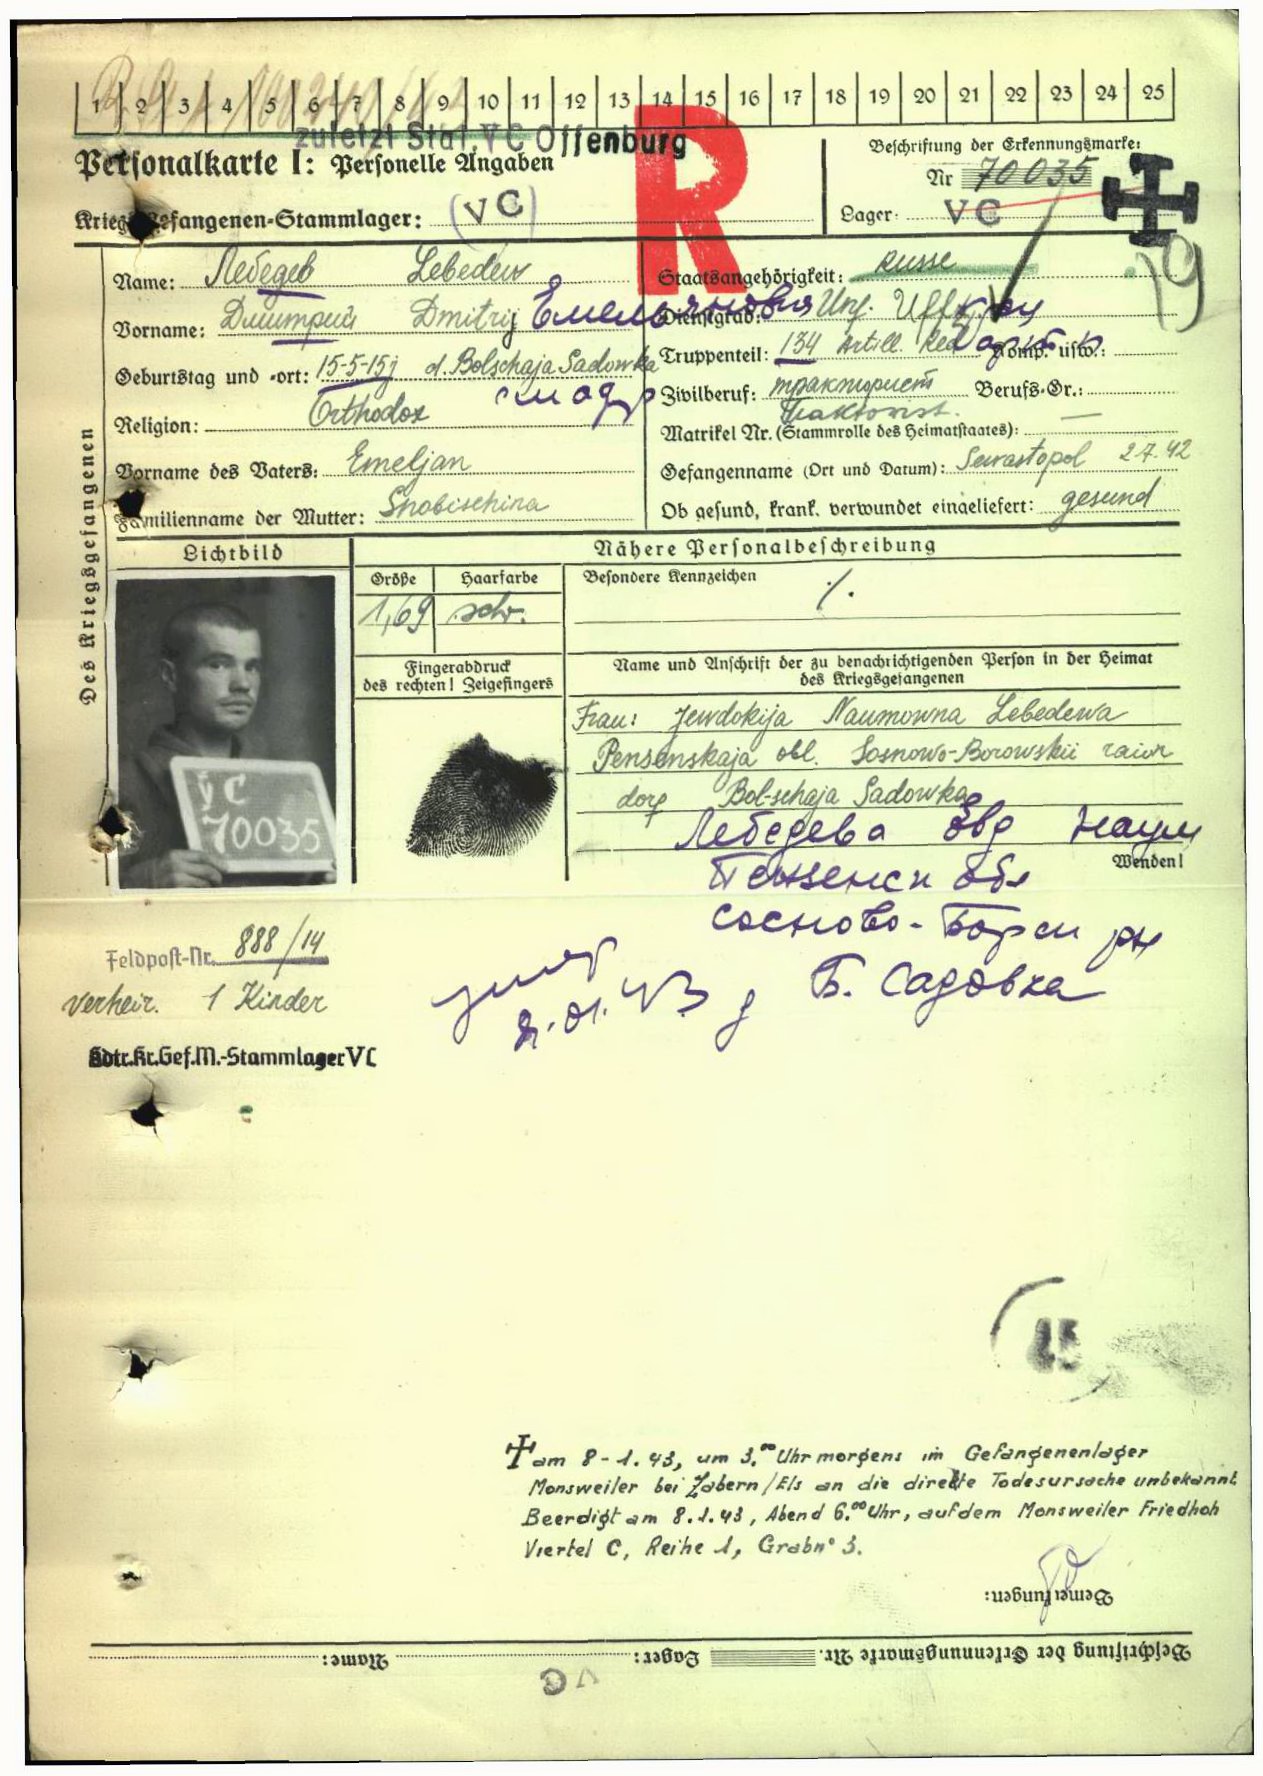 1 2 3 4 5 6 7 8 9 10 11 12 13 14 15 16 17 18 19 20 21 22 23 24 25
zuletzt Stal. VC Offenburg
R
Personalkarte I: Personelle Angaben
Kriegsgefangenen-Stammlager: (VC)
Beschriftung der Erkennungsmarke:
Nr 70035
Lager: VC
19
Des Kriegsgefangenen
Name: Лебедев Lebedew
Vorname: Дмитрий Dmitrij Емельянович
Geburtstag und -ort: 15-5-15j d. Bolschaja Sadowka
Religion: Orthodox
Vorname des Vaters: Emeljan
Familienname der Mutter:
Staatsangehörigkeit: Russe
Dienstgrad: Unj. Uff
Truppenteil: 134 Artill. Komp. usw.:
Zivilberuf: тракторист Berufs-Gr.:
Traktorist.
Matrikel Nr. (Stammrolle des Heimatstaates): —
Gefangenname (Ort und Datum): Sewastopol 2.7.42
Ob gesund, krank, verwundet eingeliefert: gesund
Lichtbild
VC
70035
Nähere Personalbeschreibung
Größe Haarfarbe Besondere Kennzeichen
1,69 schw. ./.
Fingerabdruck
des rechten! Zeigefingers
Name und Anschrift der zu benachrichtigenden Person in der Heimat
des Kriegsgefangenen
Frau: Jewdokija Naumowna Lebedewa
Pensenskaja obl. Sosnowo-Borowskii raion
dorf Bolschaja Sadowka
Лебедева Евд Наум
Wenden!
Пензенск обл
Сосново-Борск рн
д Б. Садовка
умер
8.01.43
Feldpost-Nr. 888/14
verheir. 1 Kinder
Kdtr.Kr.Gef.M.-Stammlager VC
15
† am 8-1.43, um 3.00 Uhr morgens im Gefangenenlager
Monsweiler bei Zabern/Els an die direkte Todesursache unbekannt.
Beerdigt am 8.1.43, Abend 6.00 Uhr, auf dem Monsweiler Friedhoh
Viertel C, Reihe 1, Grab n° 3.
Bemerkungen:
Beschriftung der Erkennungsmarke Nr. Lager: VC Name: